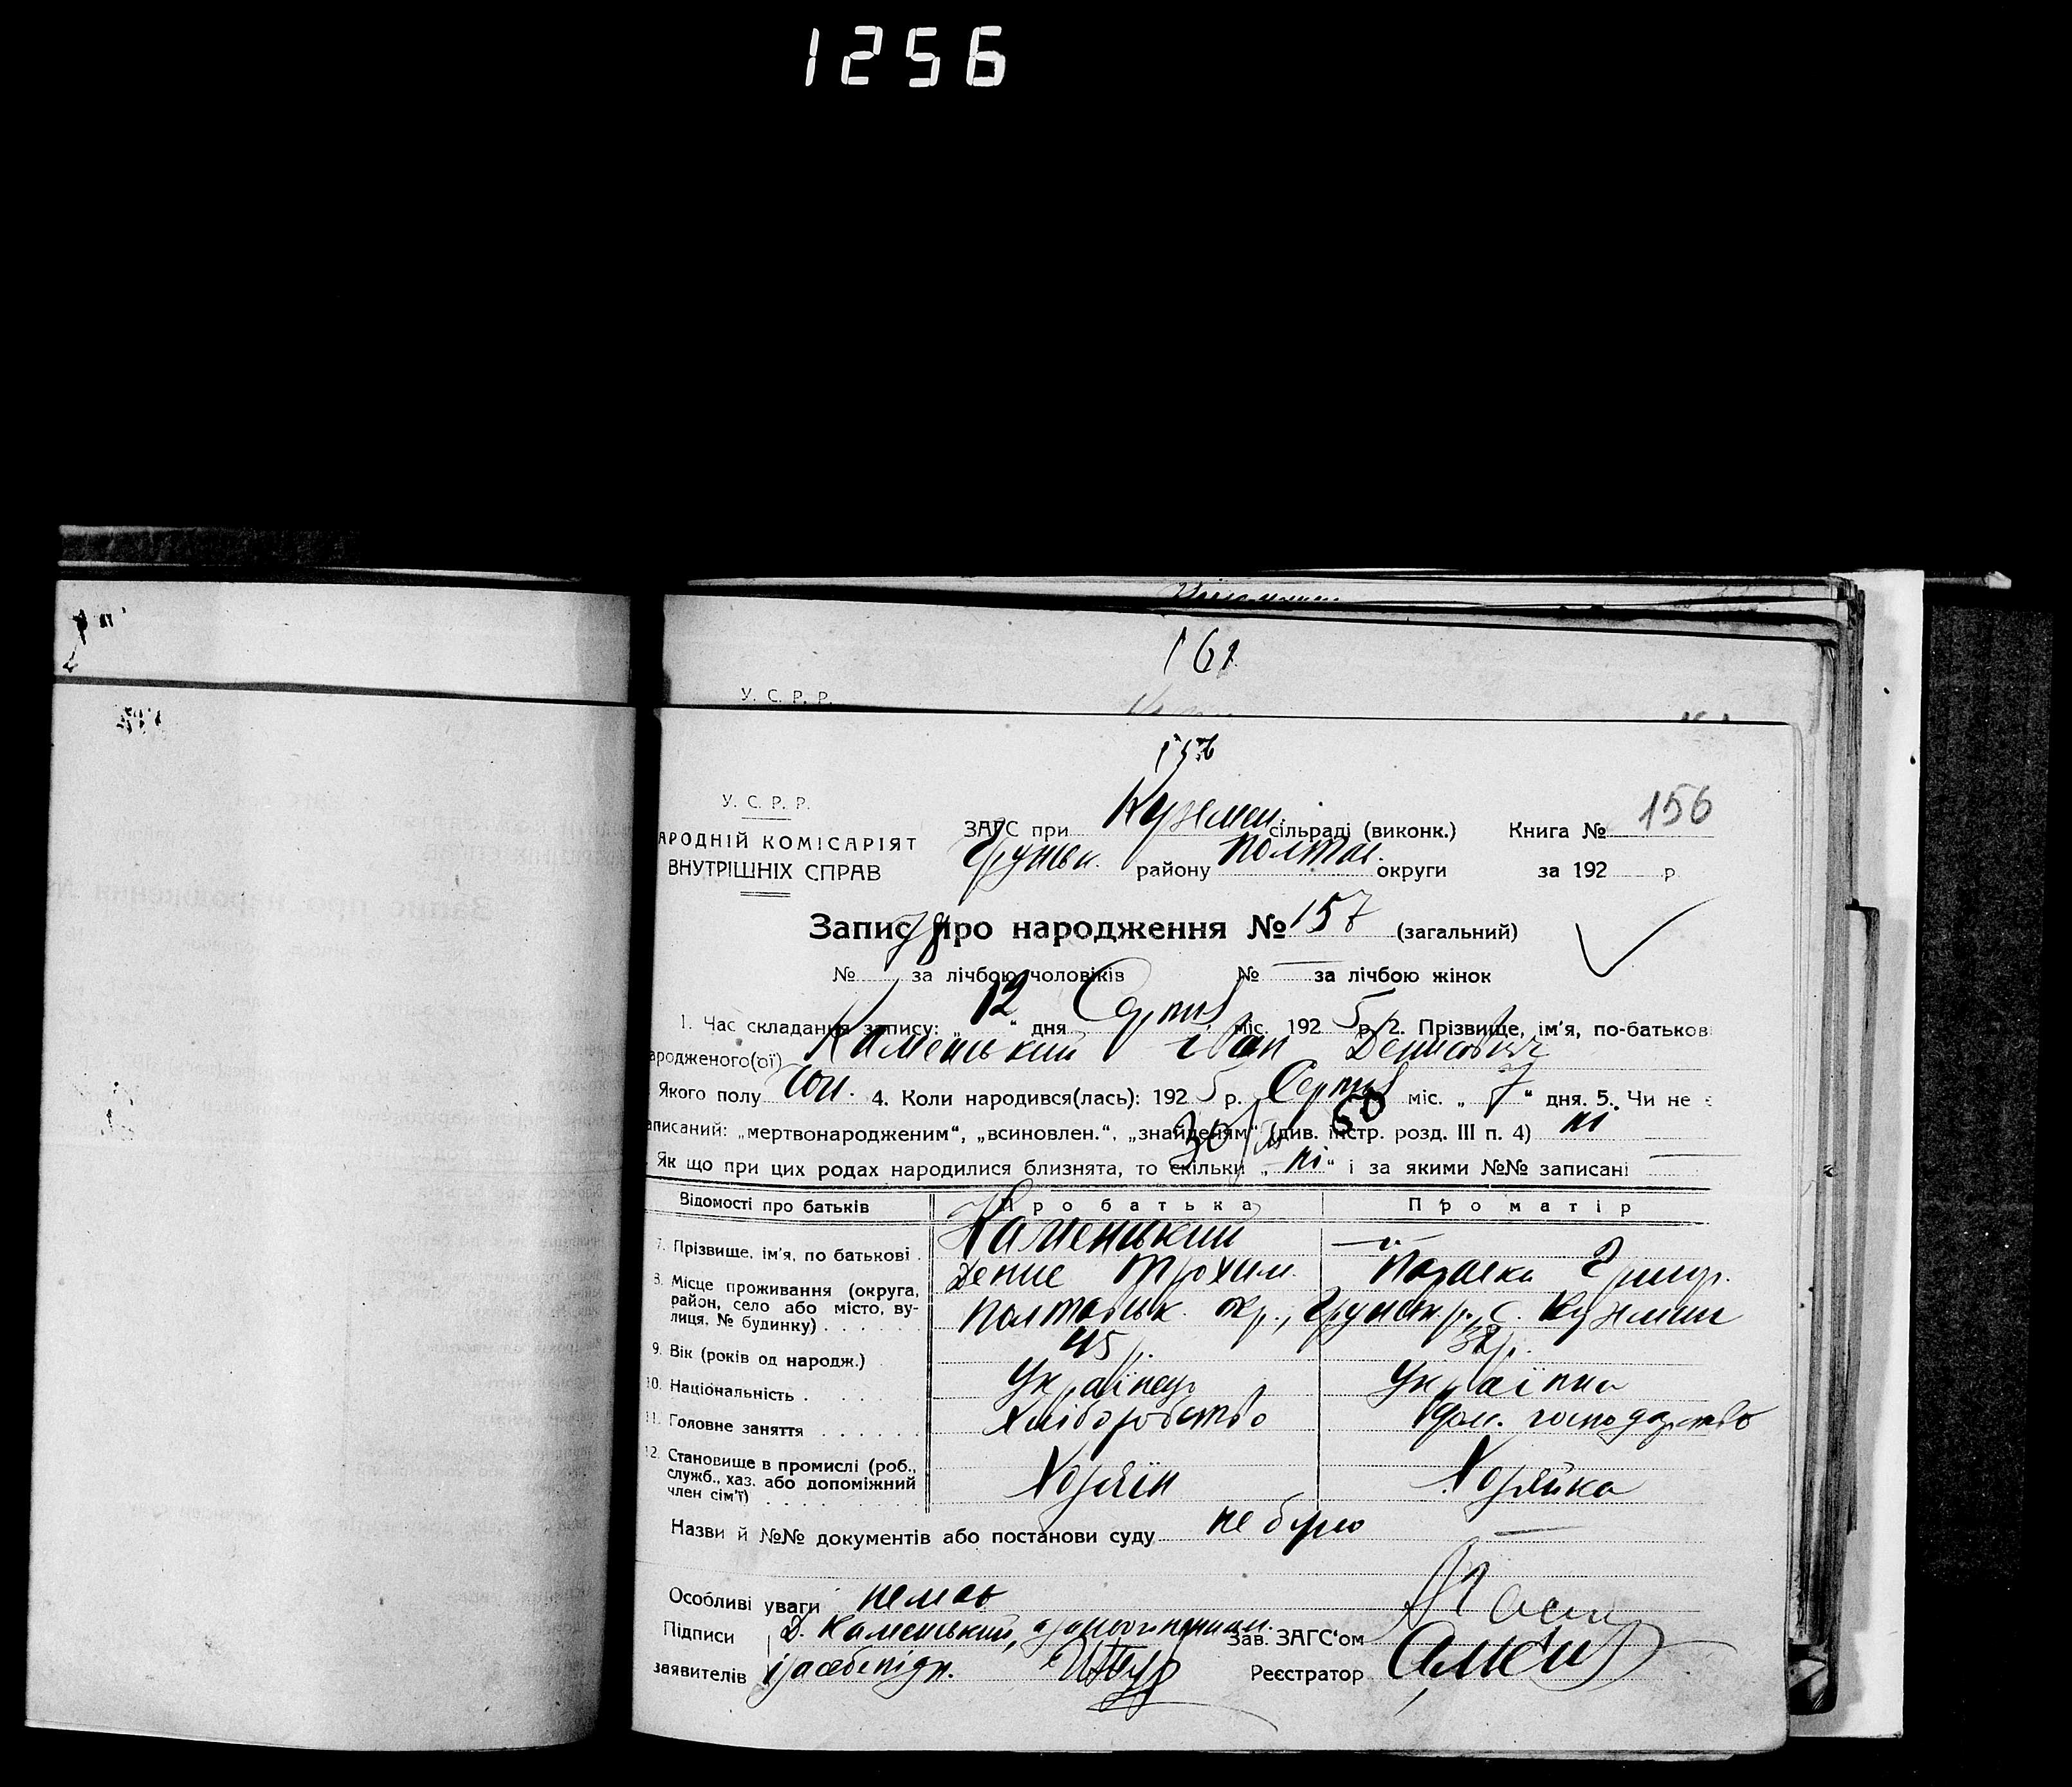 1256
161
У. С. Р. Р.
156
У. С. Р. Р.
АРОДНІЙ КОМІСАРІЯТ
ВНУТРІШНІХ СПРАВ
ЗАГС при Куземен. сільраді (виконк.) Книга № 156
Груньск. району Полтав. округи за 192 р.
Запис про народження № 157 (загальний)
№ 78 за лічбою чоловіків № — за лічбою жінок
1. Час складання запису: „ 12 “ дня Серпня міс. 192 5 р. 2. Прізвище, ім'я, по-батькові
ародженого(ої) Каменський Іван Денисович
Якого полу чол. 4. Коли народився(лась): 192 5 р. Серпня міс. „ 7 “ дня. 5. Чи не є
аписаний: „мертвонародженим“, „всиновлен.“, „знайденям“ (див. інстр. розд. III п. 4) ні
30/ 50
Як що при цих родах народилися близнята, то скільки „ ні “ і за якими №№ записані —
Відомості про батьків Про батька Про матір
7. Прізвище, ім'я, по батькові . Каменський — " —
Денис Трохим. Параска Григор.
8. Місце проживання (округа, район, село або місто, вулиця, № будинку) Полтавськ окр., Груньск. р., с. Куземин
9. Вік (років од народж.) 45 р. 38 р.
10. Національність Українець Українка
11. Головне заняття Хліборобство дом. господарство
12. Становище в промислі (роб., служб., хаз. або допоміжний член сім'ї) Хозяїн Хозяйка
Назви й №№ документів або постанови суду не було —
Особливі уваги немає
Підписи Д. Каменський, Зав. ЗАГС'ом
заявителів Реєстратор